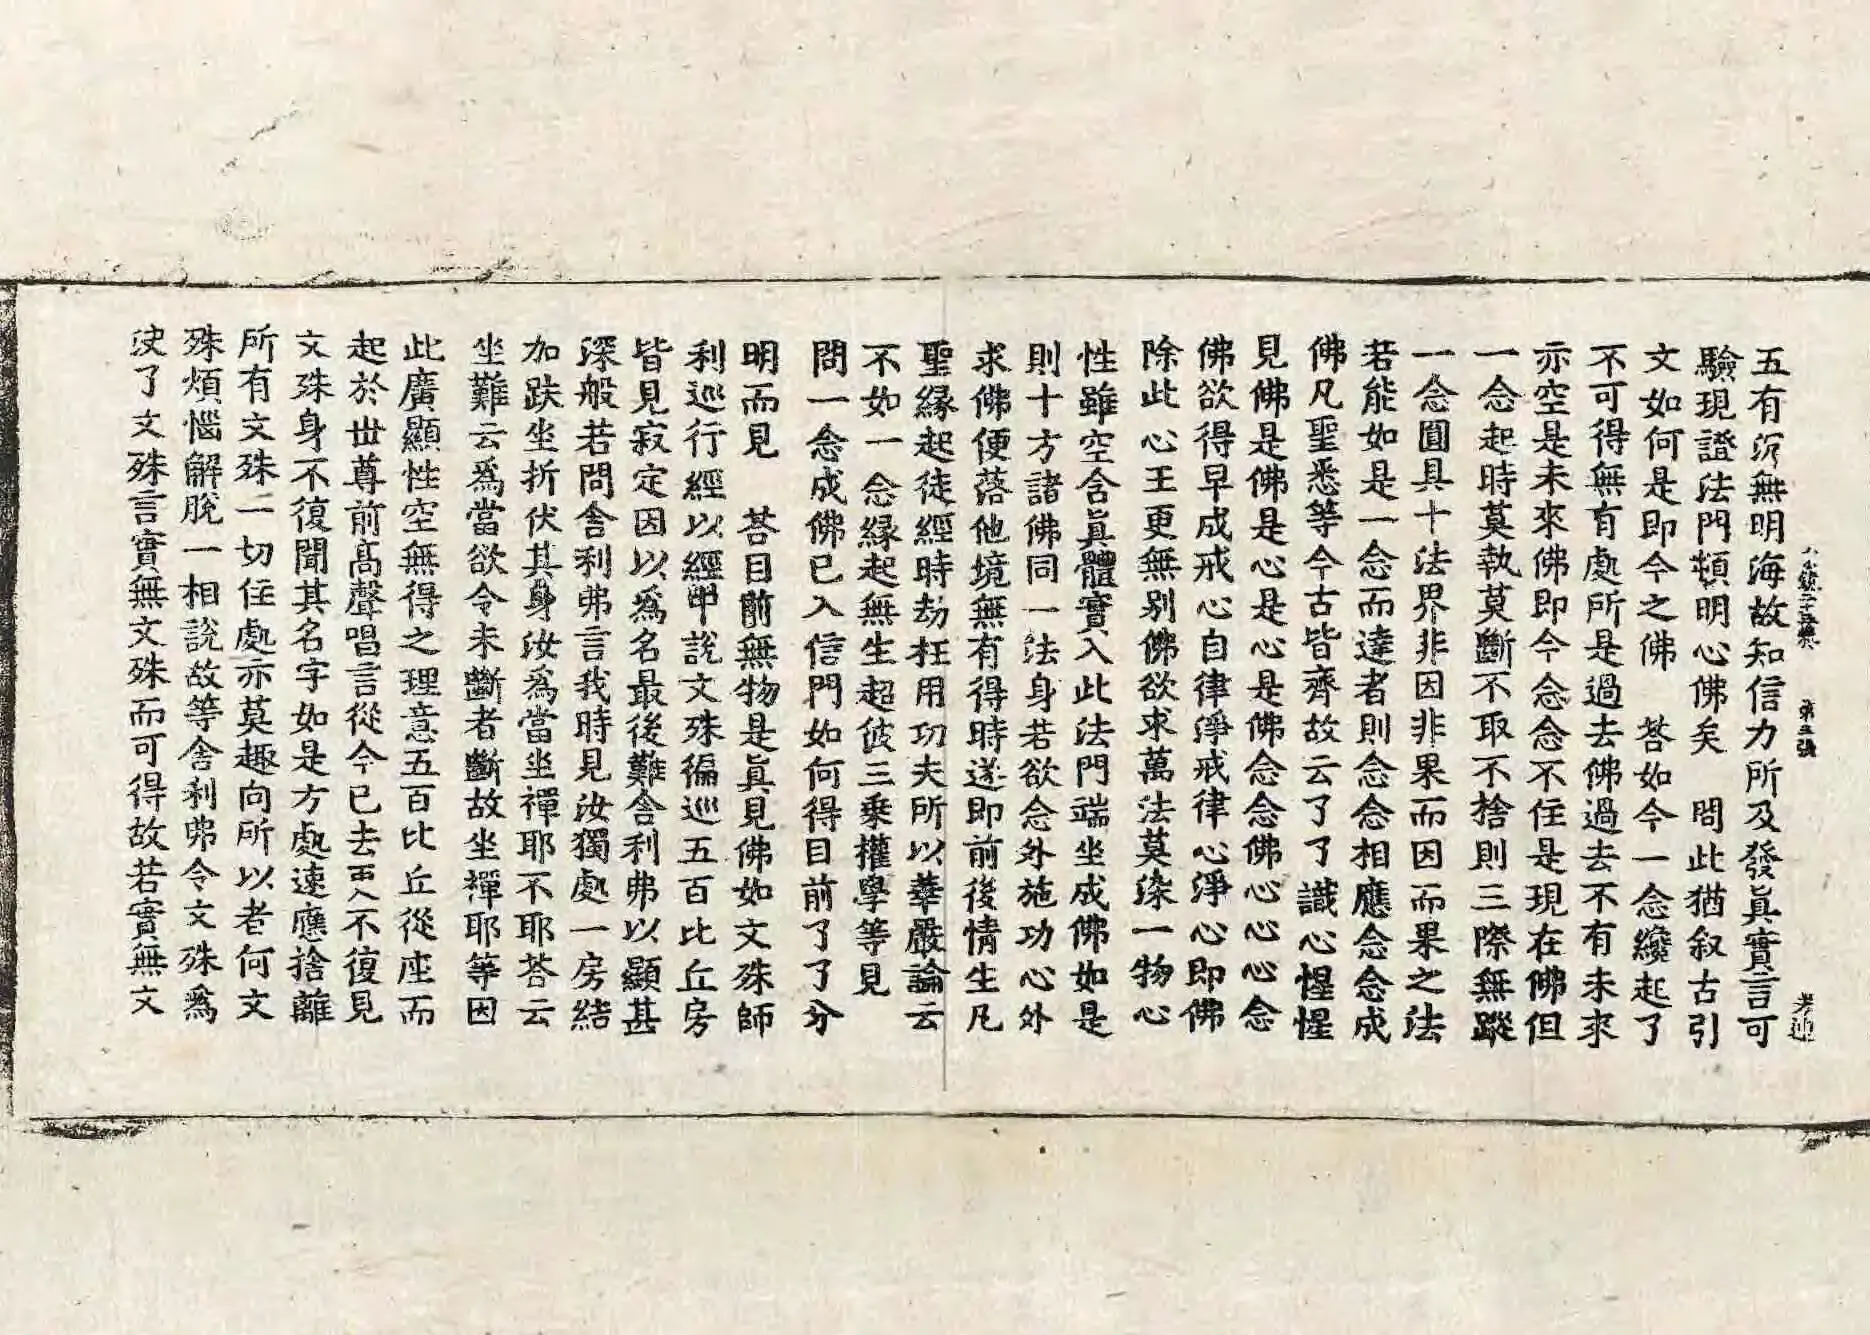 五有沉無明海故知信力所及發眞實言可
驗現證法門頓明心佛矣　問此猶叙古引
文如何是即今之佛　荅如今一念纔起了
不可得無有處所是過去佛過去不有未來
亦空是未來佛即今念念不住是現在佛但
一念起時莫執莫斷不取不捨則三際無蹤
一念圓具十法界非因非果而因而果之法
若能如是一念而達者則念念相應念念成
佛凡聖悉等今古皆齊故云了了識心惺惺
見佛是佛是心是心是佛念念佛心心心念
佛欲得早成戒心自律淨戒律心淨心即佛
除此心王更無别佛欲求萬法莫染一物心
性雖空含眞體實入此法門端坐成佛如是
則十方諸佛同一法身若欲念外施功心外
求佛便落他境無有得時遂即前後情生凡
聖緣起徒經時劫枉用功夫所以華嚴論云
不如一念緣起無生超彼三乗權學等見
問一念成佛已入信門如何得目前了了分
明而見　荅目前無物是眞見佛如文殊師
利巡行經以經中說文殊徧巡五百比丘房
皆見寂定因以爲名最後難舍利弗以顯甚
深般若問舍利弗言我時見汝獨處一房結
加趺坐折伏其身汝爲當坐禪耶不耶荅云
坐難云爲當欲令未斷者斷故坐禪耶等因
此廣顯性空無得之理意五百比丘從座而
起於世尊前髙聲唱言從今已去不復見
文殊身不復聞其名字如是方處速應捨離
所有文殊一切住處亦莫趣向所以者何文
殊煩惱解脫一相說故等舍利弗令文殊爲
决了文殊言實無文殊而可得故若實無文